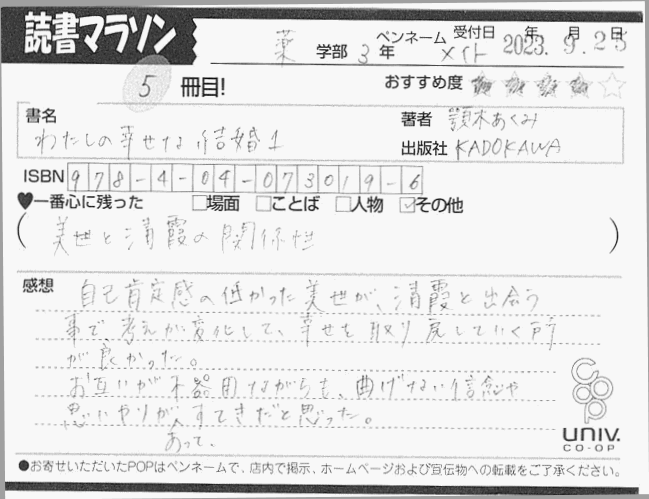 読書マラソン
薬 学部 3 年 ペンネーム メイト 受付日 2023年 9月 25日
5 冊目!
おすすめ度 ★★★★☆
書名 わたしの幸せな結婚1
著者 顎木あくみ
出版社 KADOKAWA
ISBN 978-4-04-073019-6
♥一番心に残った □場面 □ことば □人物 ☑その他
(美世と清霞の関係性)
感想 自己肯定感の低かった美世が、清霞と出会う
事で考えが変化して、幸せを取り戻していく所
が良かった。
お互いが不器用ながらも、曲げない信念や
思いやりがあって、すてきだと思った。
univ.
CO-OP
●お寄せいただいたPOPはペンネームで、店内で掲示、ホームページおよび宣伝物への転載をご了承ください。